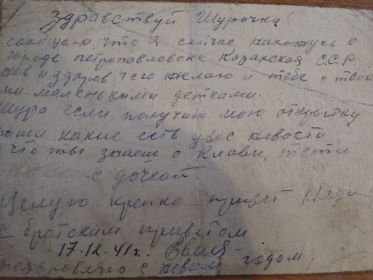 Здравствуй Шурочка
сообщаю, что я сейчас нахожусь в
городе петропавловске Казахская ССР
жив и здоров, чего желаю и тебе с твои
ми маленькими детками.
Шура если получиш мою открытку
пиши какие есть у вас новости
что ты знаеш о Клаве, тёти
с дочкой.
Целую крепко привет
с братским приветом
17.12.41г.
поздравляю с новым годом.